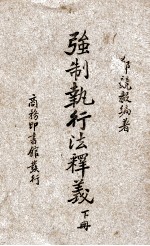 郑競毅編著
強制執行法釋義 下冊
商務印書館發行